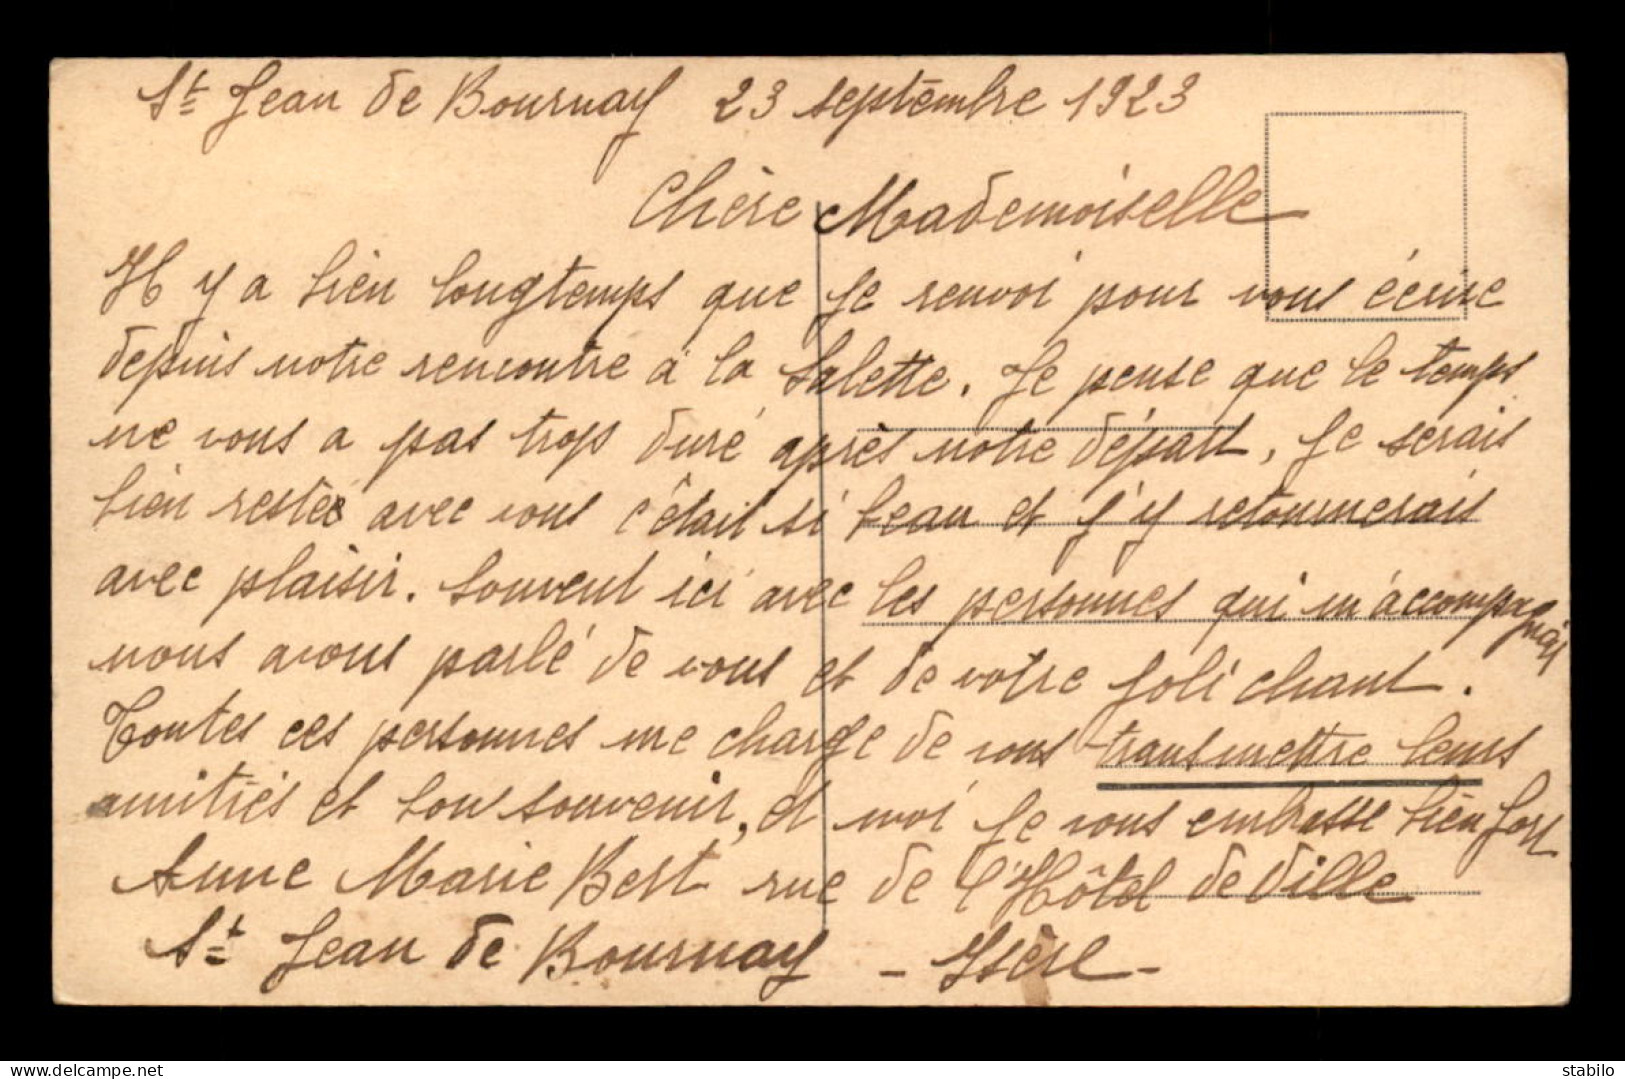 St Jean de Bournay 23 septembre 1923
Chère Mademoiselle
Il y a bien longtemps que je renvoi pour vous écrire
depuis notre rencontre à la Salette. Je pense que le temps
ne vous a pas trop duré après notre départ, je serais
bien restée avec vous c'était si beau et j'y retournerais
avec plaisir. Souvent ici avec les personnes qui m'accompagnais
nous avons parlé de vous et de votre joli chant.
Toutes ces personnes me charge de vous transmettre leurs
amitiés et bon souvenir, et moi je vous embrasse bien fort
Anne Marie Bert rue de l'Hôtel de Ville
St Jean de Bournay - Isère -
delcampe.net
stabilo